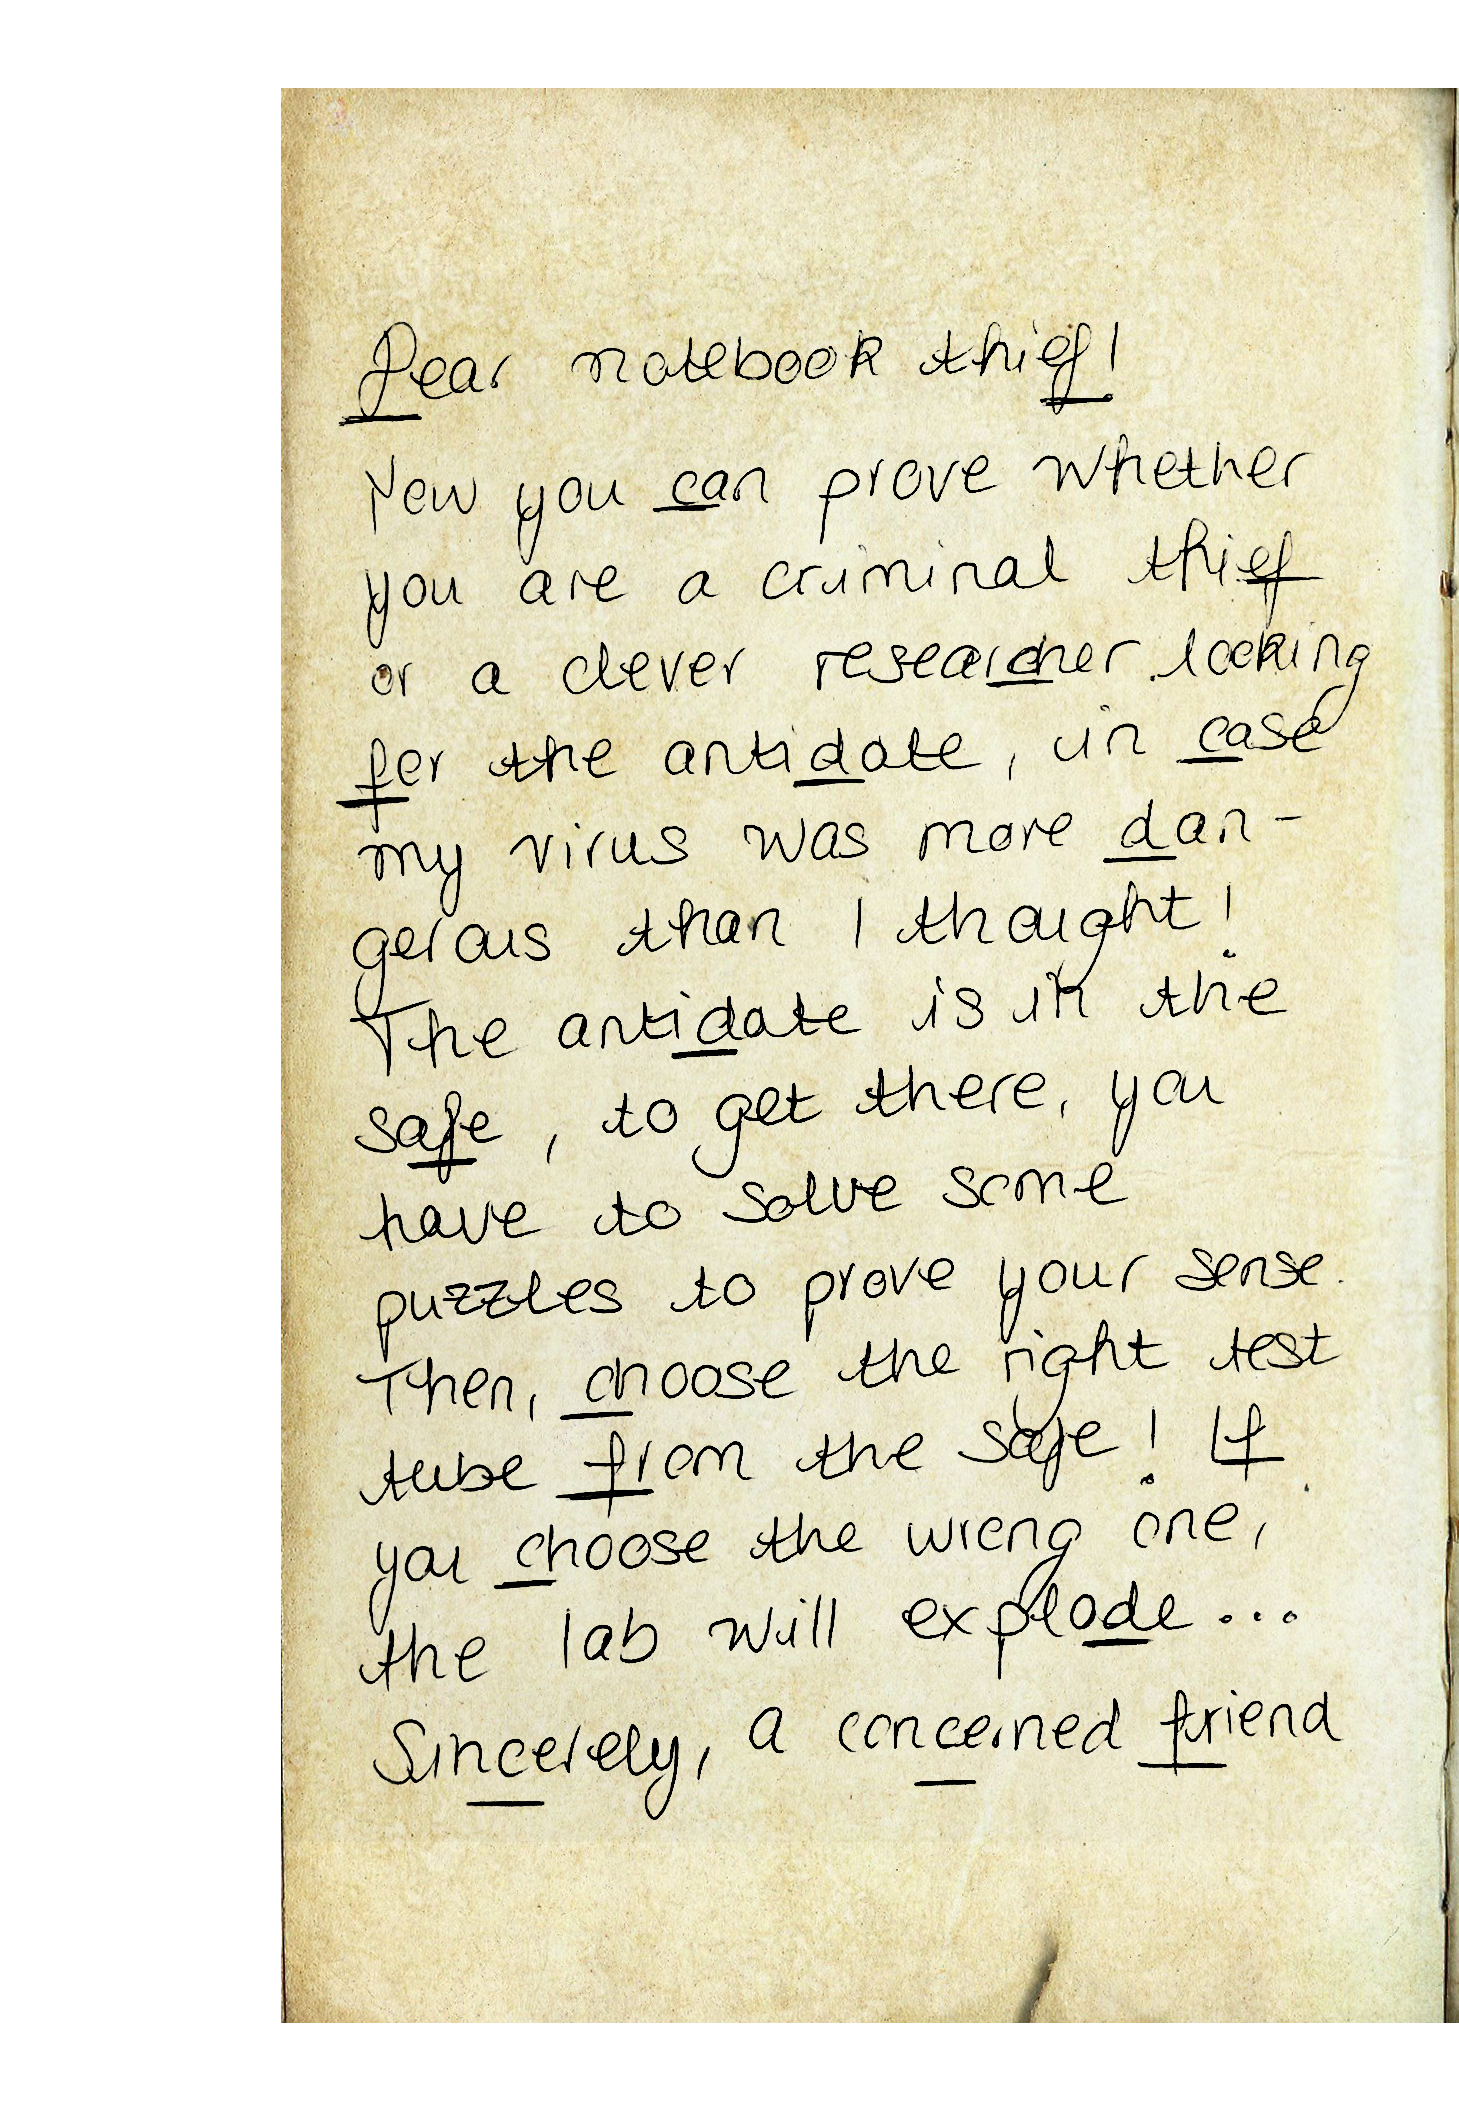 Dear notebook thief!
Now you can prove whether
you are a criminal thief
or a clever researcher looking
for the antidote, in case
my virus was more dan-
gerous than I thought!
The antidote is in the
safe, to get there, you
have to solve some
puzzles to prove your sense.
Then, choose the right test
tube from the safe! If
you choose the wrong one,
the lab will explode...
Sincerely, a concerned friend